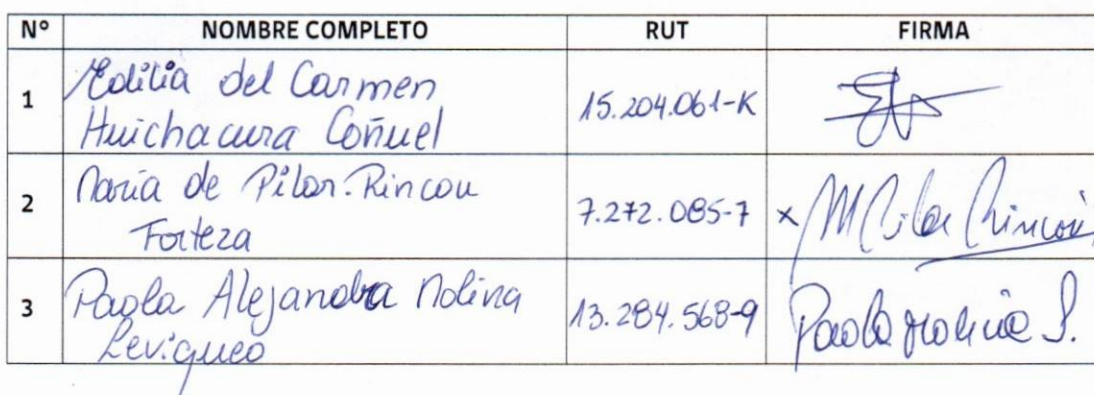 Nº NOMBRE COMPLETO RUT FIRMA
1 Edilia del Carmen
Huichacura Coñuel 15.204.061-K
2 María de Pilar Rincon
Forteza 7.272.085-7 x M Pilar Rincón
3 Paola Alejandra Molina
Leviqueo 13.284.568-9 Paola Molina